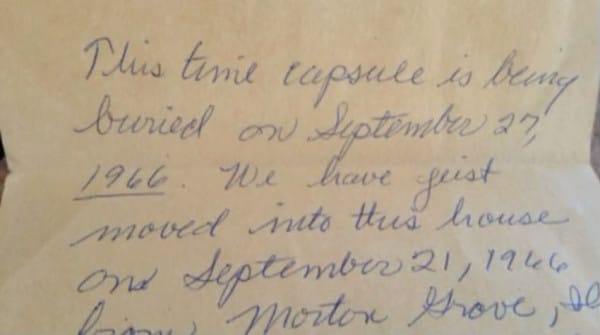 This time capsule is being
buried on September 27,
1966. We have just
moved into this house
on September 21, 1966
from Morton Grove, Il